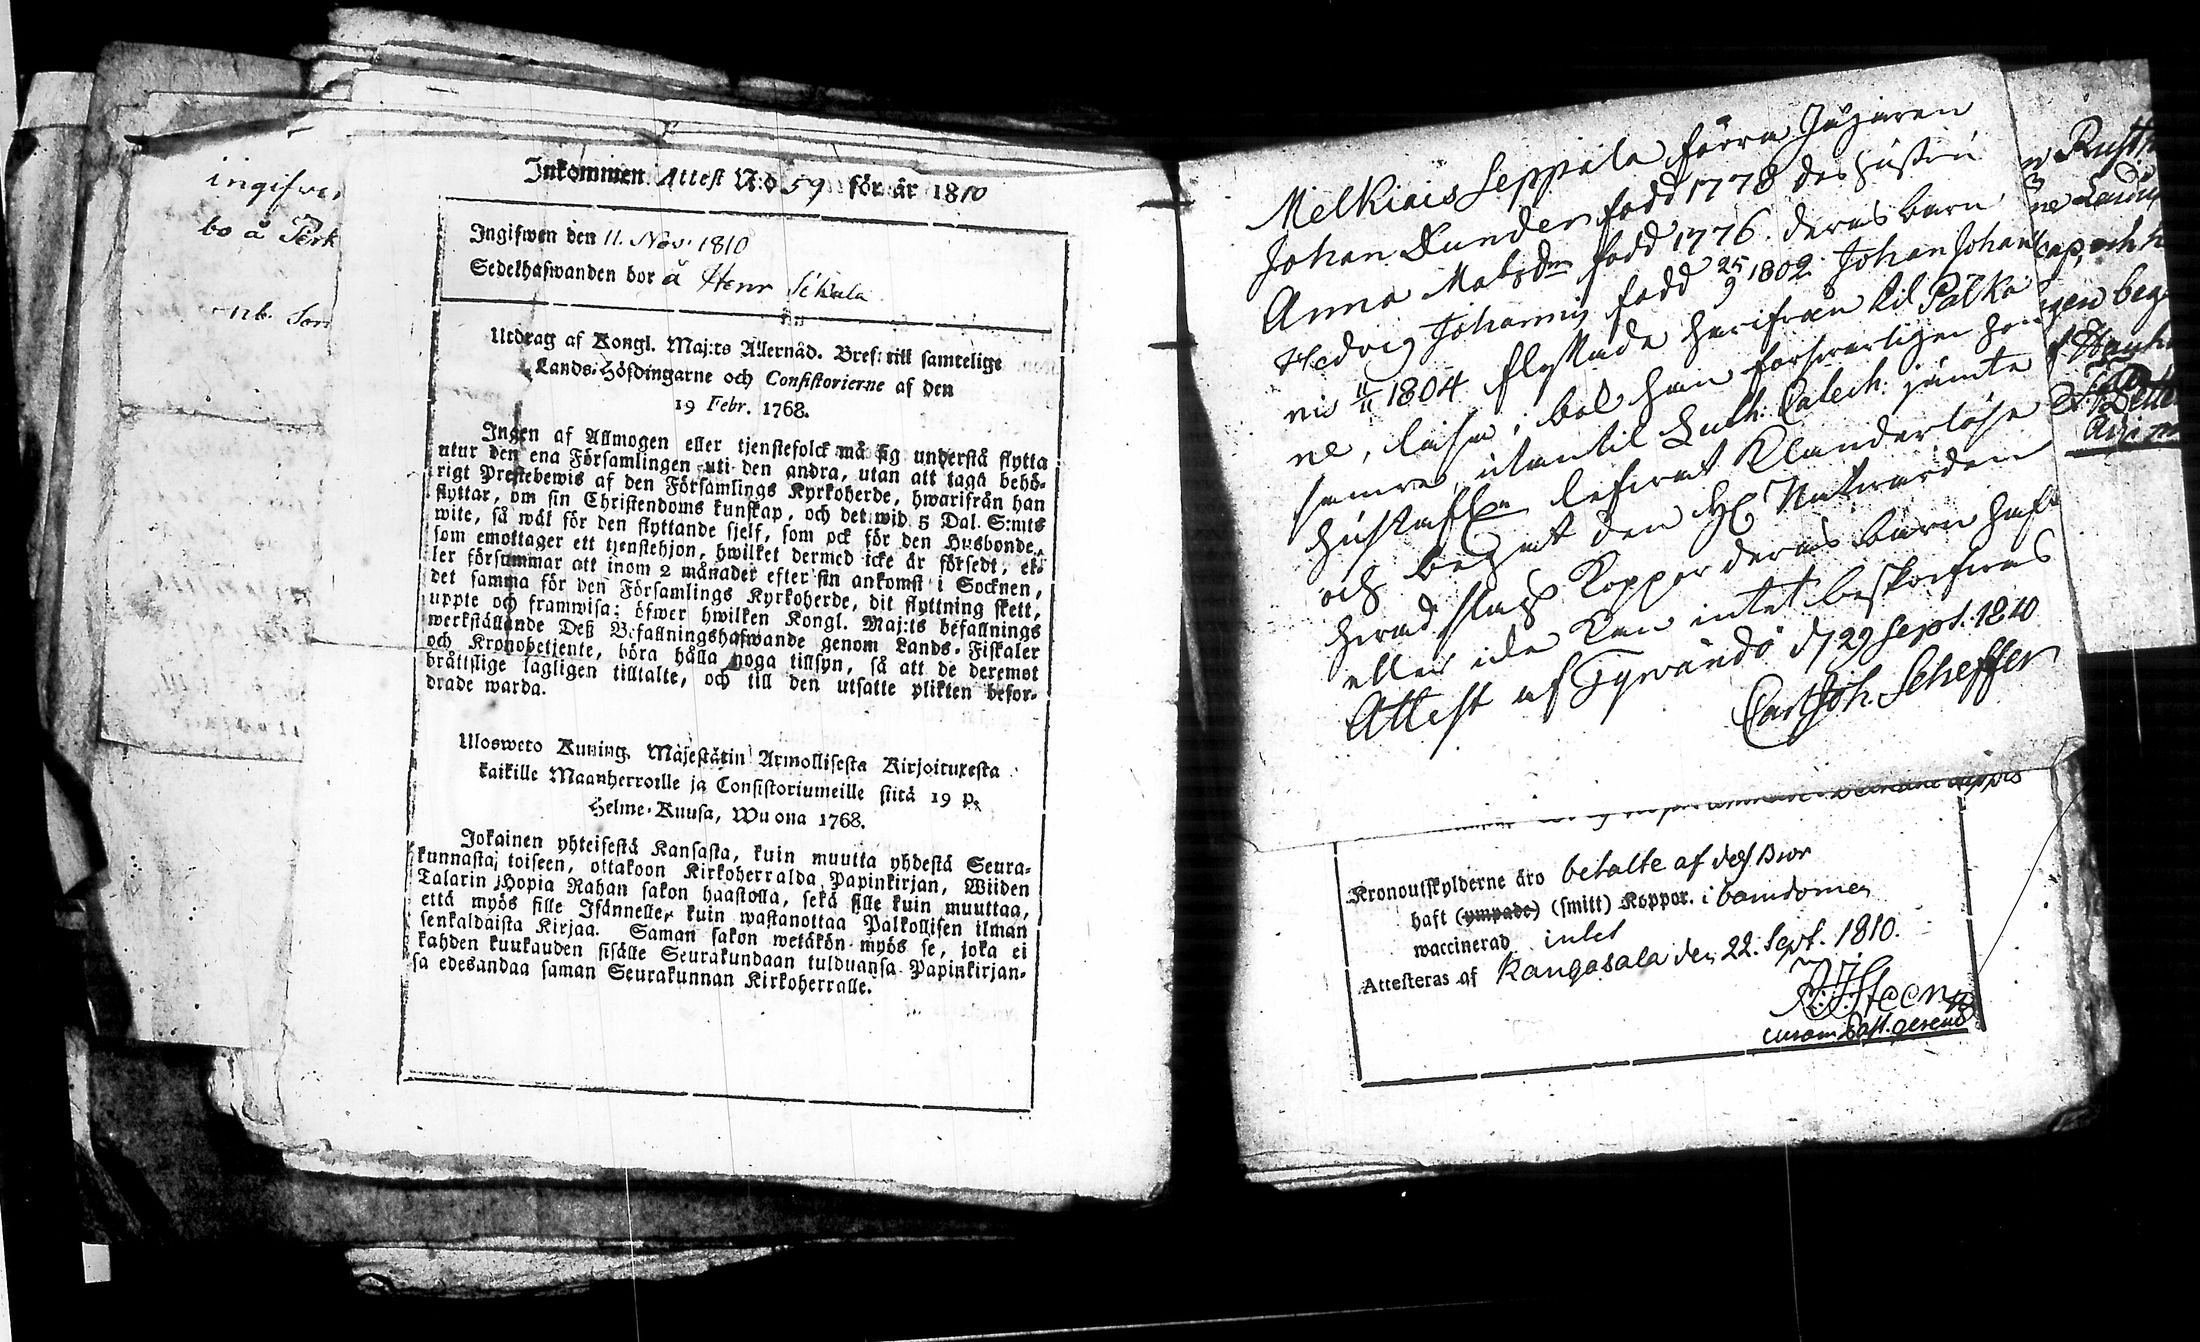 ingifwe
bo å Perk
nb. Son
Inkommen Attest N:o 59 för år 1810
Ingifwen den 11. Nov. 1810
Sedelhafwanden bor å Henr Sikala
Utdrag af Kongl. Maj:ts Allernåd. Bref till samtelige
Lands-Höfdingarne och Consistorierne af den
19 Febr. 1768.
Ingen af Allmogen eller tjenstefolck må sig understå flytta
utur den ena Församlingen uti den andra, utan att taga behö-
rigt Prestebewis af den Församlings Kyrkoherde, hwarifrån han
flyttar, om sin Christendoms kunskap, och det wid 5 Dal. S:mts
wite, så wäl för den flyttande sjelf, som ock för den Husbonde,
som emottager ett tjenstehjon, hwilket dermed icke är försedt, el-
ler försummar att inom 2 månader efter sin ankomst i Socknen,
det samma för den Församlings Kyrkoherde, dit flyttning skett,
uppte och framwisa; öfwer hwilken Kongl. Maj:ts befallnings
werkställande Deß Befallningshafwande genom Lands-Fiskaler
och Kronobetjente, böra hålla noga tillsyn, så att de deremot
bråttslige lagligen tilltalte, och till den utsatte plikten befor-
drade warda.
Ulosweto Kuning. Majestätin Armollisesta Kirjoituxesta
kaikille Maanherroille ja Consistoriumeille siitä 19 p.
Helme-Kuusa, Wuona 1768.
Jokainen yhteisestä Kansasta, kuin muutta yhdestä Seura-
kunnasta toiseen, ottakoon Kirkoherralda Papinkirjan, Wiiden
Talarin Hopia Rahan sakon haastolla, sekä sille kuin muuttaa,
että myös sille Isännelle, kuin wastanottaa Palkollisen ilman
senkaldaista Kirjaa. Saman sakon wetäkön myös se, joka ei
kahden kuukauden sisälle Seurakundaan tulduansa Papinkirjan-
sa edesandaa saman Seurakunnan Kirkoherralle.
Melkiais Seppala förra Jägaren
Johan Lunder född 1778 des hustru
Anna Matsdr född 1776. deras barn
Hedvig Johanna född 25/9 1802. Johan Johan
ni 11/11 1804 flyttade härifrån til Pälkä
ne, läser i bok han försvarligen hon
samre, utantil Luth. Catech. jämte
hustaflan lefvat Klanderlöse
och begådt den H. Nattvarden
hvad slags Koppor deras barn haft
eller icke kan intet beskrifvas
Attest af Tyrwändö d 29 Sept. 1810
Carl Joh. Scheffer
Kronoutskylderne äro betalte af deß Bror
haft (ympade) (smitt) Koppor. i barndomen
waccinerad intet
Attesteras af Kangasala den 22. Sept. 1810.
Steen
curam Past. gerens